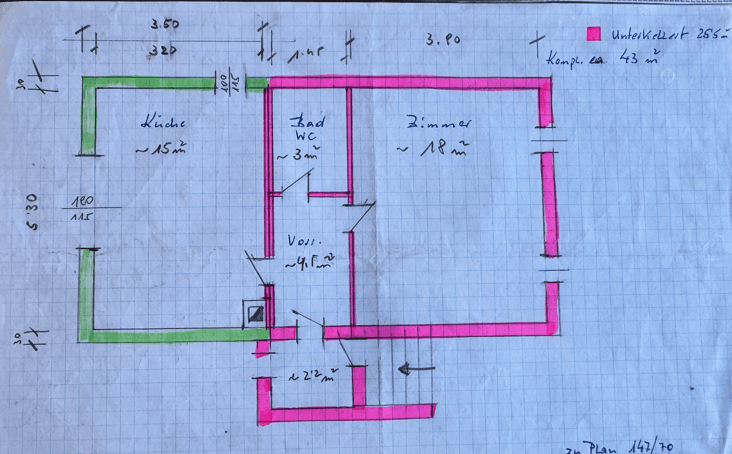 3.50
320
1.45
3.90
Unterkellert 26.5 m²
Kompl. ca. 43 m²
30
100
115
Küche
~ 15 m²
Bad
WC
~ 3 m²
Zimmer
~ 18 m²
180
115
5.30
Vorr.
~ 4,5 m²
30
~ 2'2 m²
zu Plan 147/70